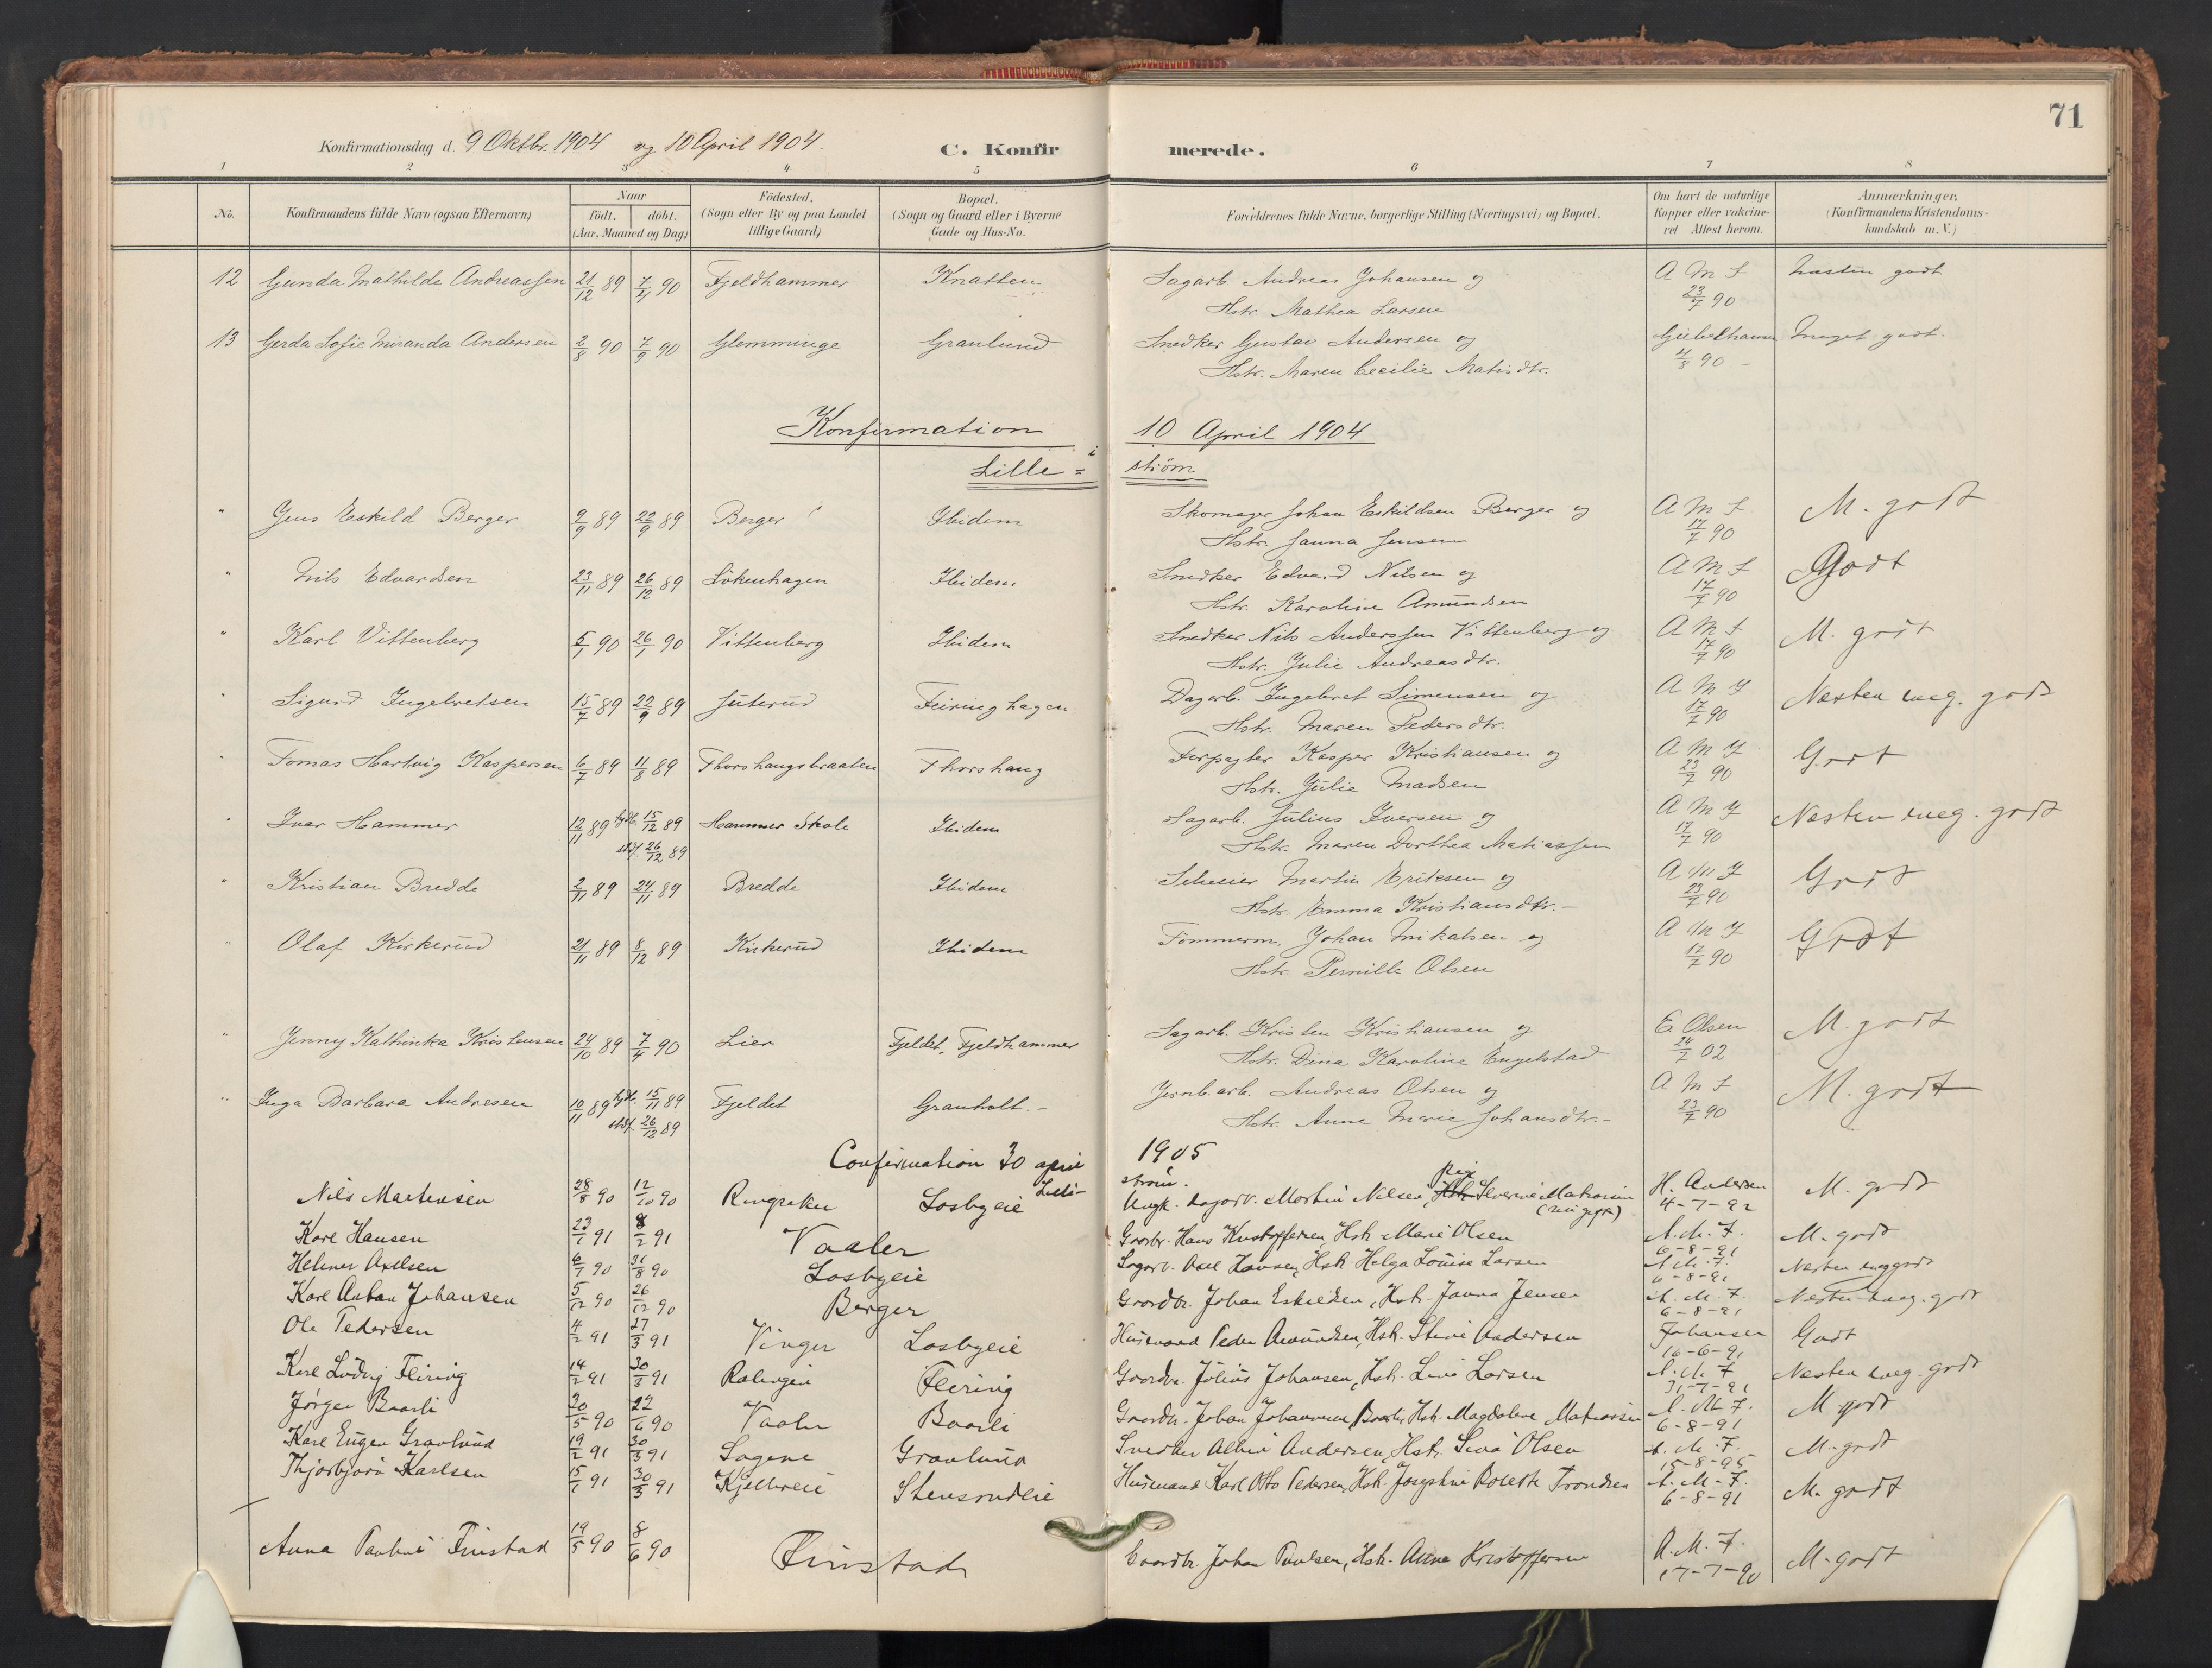 71
Konfirmationsdag d. 9 Oktbr. 1904 og 10 April 1904.
C. Konfirmerede.
1 2 3 4 5 6 7 8
No. Konfirmandens fulde Navn (ogsaa Efternavn) Naar födt. döbt. (Aar, Maaned og Dag) Födested. (Sogn eller By og paa Landet tillige Gaard) Bopæl. (Sogn og Gaard eller i Byerne Gade og Hus-No. Forældrenes fulde Navne, borgerlige Stilling (Næringsvei) og Bopæl. Om havt de naturlige Kopper eller vakcineret Attest herom. Anmærkninger. (Konfirmandens Kristendomskundskab m. V.)
12 Gunda Mathilde Andreassen 21/12 89 7/4 90 Fjeldhammer Knatten Sagarb. Andreas Johansen og A M F næsten godt
Hstr. Mathea Larsen 23/7 90
13 Gerda Sofie Miranda Andersen 2/8 90 7/9 90 Glemminge Granlund Snedker Gustav Andersen og meget godt.
Hstr. Maren Cecilie Matisdtr. 4/8 90 –
Konfirmation 10 April 1904
i Lille= ström
" Jens Eskild Berger 9/9 89 22/9 89 Berger Ibidem Skomager Johan Eskildsen Berger og A M F M. godt
Hstr. Janna Jensen 17/7 90
" Nils Edvardsen 23/11 89 26/12 89 Lökenhagen Ibidem Snedker Edvard Nilsen og A M F Godt
Hstr. Karoline Amundsen 17/7 90
" Karl Vittenberg 5/1 90 26/1 90 Vittenberg Ibidem Snedker Nils Anderssen Vittenberg og A M F M. godt
Hstr. Julie Andreasdtr. 17/7 90
" Sigurd Ingebretsen 15/7 89 22/9 89 Juterud Feiringhagen Dagarb. Ingebret Simensen og A M F Næsten meg. godt
Hstr. Maren Pedersdtr. 17/7 90
" Tomas Hartvig Kaspersen 6/7 89 11/8 89 Thorshaugbraaten Thorshaug Forpagter Kasper Kristiansen og A M F Godt
Hstr. Julie Madsen 23/7 90
" Ivar Hammer 12/11 89 hjdb. 15/12 89 Hammer Skole Ibidem Sagarb. Julius Iversen og A M F Næsten meg. godt
stdf. 26/12 89 Hstr. Maren Dorthea Matiassen 17/7 90
" Kristian Bredde 2/11 89 24/11 89 Bredde Ibidem Seleier Martin Eriksen og A M F Godt
Hstr. Emma Kristiansdtr. – 23/7 90
" Olaf Kirkerud 21/11 89 8/12 89 Kirkerud Ibidem Tömmerm. Johan Mikalsen og A M F Godt
Hstr. Pernille Olsen 17/7 90
" Jenny Kathinka Kristensen 24/10 89 7/4 90 Lier Fjeldet, Fjeldhammer Sagarb. Kristen Kristiansen og E. Olsen M. godt
Hstr. Dina Karoline Engelstad 24/7 02
" Inga Barbara Andresen 10/11 89 hjdb. 15/11 89 Fjeldet Granholt. – Jernb.arb. Andreas Olsen og A M F M. godt
stdf. 26/12 89 Hstr. Anne Marie Johansdtr. – 23/7 90
Confirmation 30 april 1905
Lille- strøm.
Nils Martinsen 28/8 90 12/10 90 Ringsaker Losbyeie Ungk. Dagarb. Martin Nilsen, Pige Severine Matiassen H. Andersen M. godt
(nu gift) 4-7-92
Kare Hansen 23/1 91 8/2 91 Vaaler Gaardbr. Hans Kristoffersen, Hstr. Marie Olsen A. M. F. M. godt
6-8-91
Helmer Axelsen 6/7 90 31/8 90 Losbyeie Sagarb. Axel Hansen, Hstr. Helga Louise Larsen A. M. F. Næsten meg godt
6-8-91
Kare Anton Johansen 5/12 90 26/12 90 Berger Gaardbr. Johan Eskildsen, Hstr. Janna Jensen A. M. F. Næsten meg. godt
6-8-91
Ole Pedersen 4/2 91 27/3 91 Vinger Losbyeie Husmand Peder Amundsen, Hstr. Stine Andersen Johansen Godt
16-6-91
Kare Ludvig Fleiring 14/2 91 30/3 91 Rælingen Fleiring Gaardbr. Julius Johansen, Hstr. Lina Larsen A. M. F. Næsten meg. godt
31-7-91
Jørgen Baarli 30/5 90 22/6 90 Vaaler Baarli Gaardbr. Johan Johannesen Baarli, Hstr. Magdalene Matiassen A. M. F. M godt
6-8-91
Kare Eugen Gravlund 19/2 91 30/3 91 Sagene Gravlund Snedker Albin Andersen, Hstr. Lina Olsen A. M. F. M. godt
15-8-95
Thjorbjørn Karlsen 15/1 91 30/3 91 Stensrudeie Husmand Karl Otto Pedersen, Hstr. Josephine Bolette Trondsen A. M. F. M. godt
6-8-91
Anna Pauline Finstad 19/5 90 8/6 90 Finstad Gaardbr. Johan Paulsen, Hstr. Anne Kristoffersen A. M. F. M. godt
17-7-90